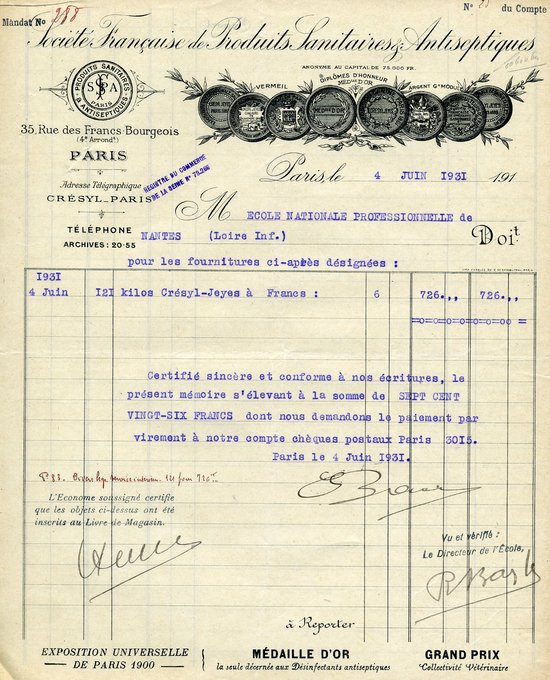 Mandat No 288
N° du Compte
Société Française de Produits Sanitaires & Antiseptiques
ANONYME AU CAPITAL DE 75.000 FR.
DIPLÔMES D'HONNEUR
MÉD^les D'OR
VERMEIL
ARGENT G^d MODULE
PRODUITS SANITAIRES & ANTISEPTIQUES
PARIS
35, Rue des Francs-Bourgeois
(4e Arrondt)
PARIS
Adresse Télégraphique
CRÉSYL-PARIS
TÉLÉPHONE
ARCHIVES: 20-55
REGISTRE DU COMMERCE
DE LA SEINE N° 79.286
Paris, le 4 JUIN 1931 191
M ECOLE NATIONALE PROFESSIONNELLE de
NANTES (Loire Inf.) Doit
pour les fournitures ci-après désignées :
1931
4 Juin 121 kilos Crésyl-Jeyes à Francs : 6 726.,, 726.,,
=0=0=0=0=0=0=0=
Certifié sincère et conforme à nos écritures, le
présent mémoire s'élevant à la somme de SEPT CENT
VINGT-SIX FRANCS dont nous demandons le paiement par
virement à notre compte chèques postaux Paris 3015.
Paris le 4 Juin 1931.
L'Econome soussigné certifie
que les objets ci-dessus ont été
inscrits au Livre de Magasin.
Vu et vérifié :
Le Directeur de l'École,
à Reporter
EXPOSITION UNIVERSELLE
DE PARIS 1900
MÉDAILLE D'OR
la seule décernée aux Désinfectants antiseptiques
GRAND PRIX
Collectivité Vétérinaire